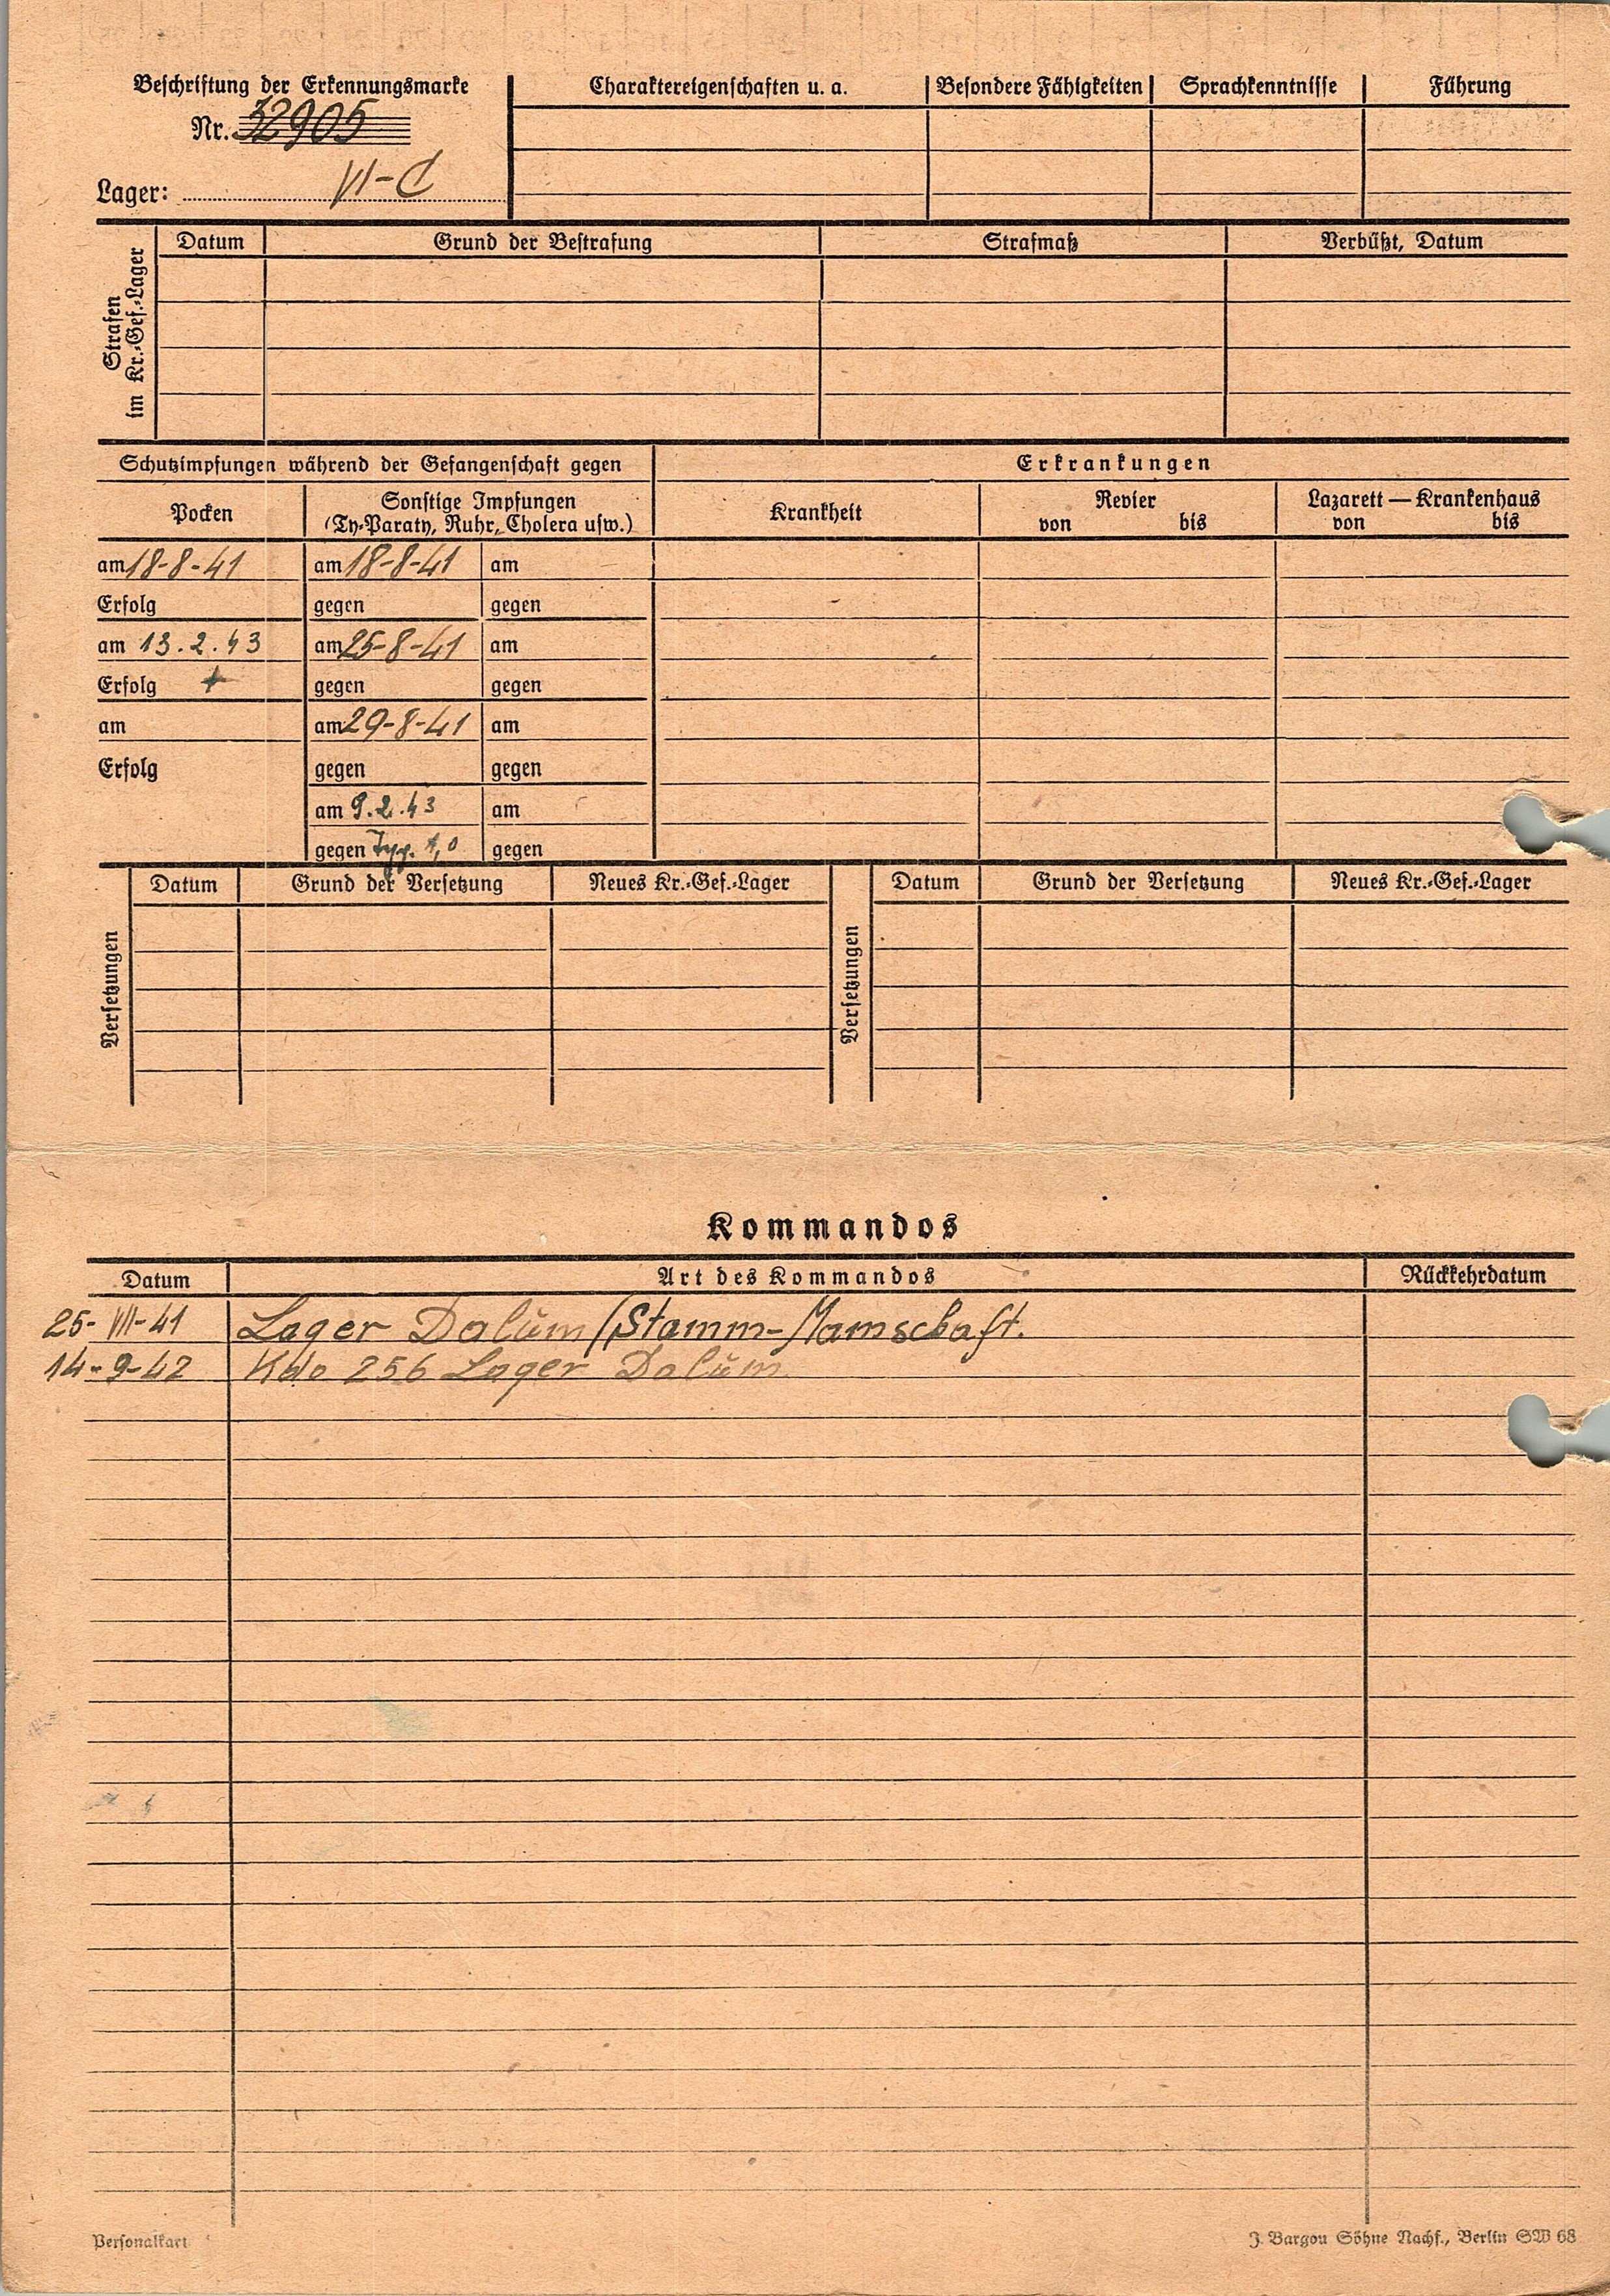 Beschriftung der Erkennungsmarke
Nr. 32905
Lager: VI-C
Charaktereigenschaften u. a.
Besondere Fähigkeiten
Sprachkenntnisse
Führung
Strafen im Kr.-Gef.-Lager
Datum
Grund der Bestrafung
Strafmaß
Verbüßt, Datum
Schutzimpfungen während der Gefangenschaft gegen
Erkrankungen
Pocken
Sonstige Impfungen
(Ty-Paraty, Ruhr, Cholera usw.)
Krankheit
Revier
von bis
Lazarett — Krankenhaus
von bis
am 18-8-41 am 18-8-41 am
Erfolg gegen gegen
am 13.2.43 am 25-8-41 am
Erfolg + gegen gegen
am am 29-8-41 am
Erfolg gegen gegen
am 9.2.43 am
gegen 1,0 gegen
Versetzungen
Datum Grund der Versetzung Neues Kr.-Gef.-Lager
Versetzungen
Datum Grund der Versetzung Neues Kr.-Gef.-Lager
Kommandos
Datum Art des Kommandos Rückkehrdatum
25-VII-41 Lager Dalum/Stamm-Mannschaft.
14-9-42 Kdo 256 Lager Dalum
Personalkart
J. Bargou Söhne Nachf., Berlin SW 68